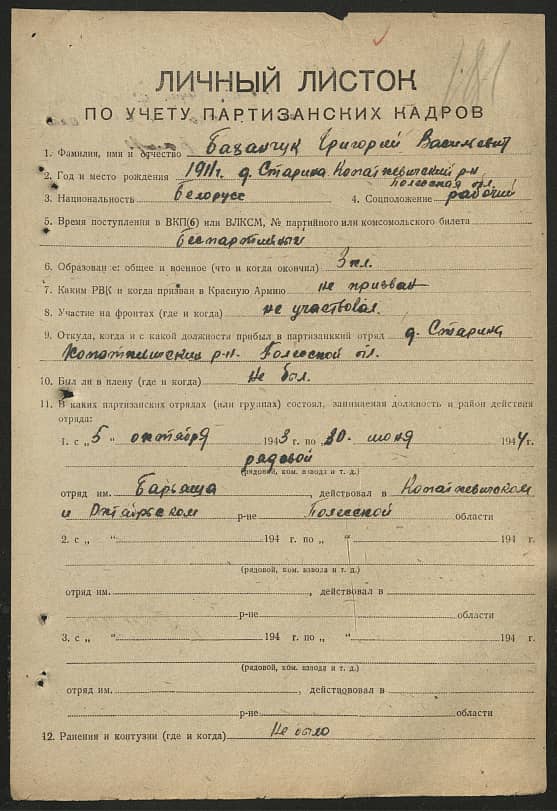 ЛИЧНЫЙ ЛИСТОК
ПО УЧЕТУ ПАРТИЗАНСКИХ КАДРОВ
1. Фамилия, имя и отчество Базанчук Григорий Васильевич
2. Год и место рождения 1911г. д. Старина Копаткевичский р-н
Полесская обл.
3. Национальность Белорусс 4. Соцположение рабочий
5. Время поступления в ВКП(б) или ВЛКСМ, № партийного или комсомольского билета
Беспартийный
6. Образование: общее и военное (что и когда окончил) 3 кл.
7. Каким РВК и когда призван в Красную Армию не призван
8. Участие на фронтах (где и когда) не участвовал.
9. Откуда, когда и с какой должности прибыл в партизанский отряд д. Старина
Копаткевичский р-н. Полесской обл.
10. Был ли в плену (где и когда) Не был.
11. В каких партизанских отрядах (или группах) состоял, занимаемая должность и район действия
отряда:
1. с „5" октября 1943 г. по „30" июня 1944 г.
рядовой
(рядовой, ком. взвода и т. д.)
отряд им. , действовал в Копаткевичском
и Октябрьском р-не Полесской области
2. с „ " 194 г. по „ " 194 г.
(рядовой, ком. взвола и т. д.)
отряд им. , действовал в
р-не области
3. с „ " 194 г. по „ " 194 г.
(рядовой, ком. взвода и т. д.)
отряд им. , действовал в
р-не области
12. Ранения и контузии (где и когда) Не было